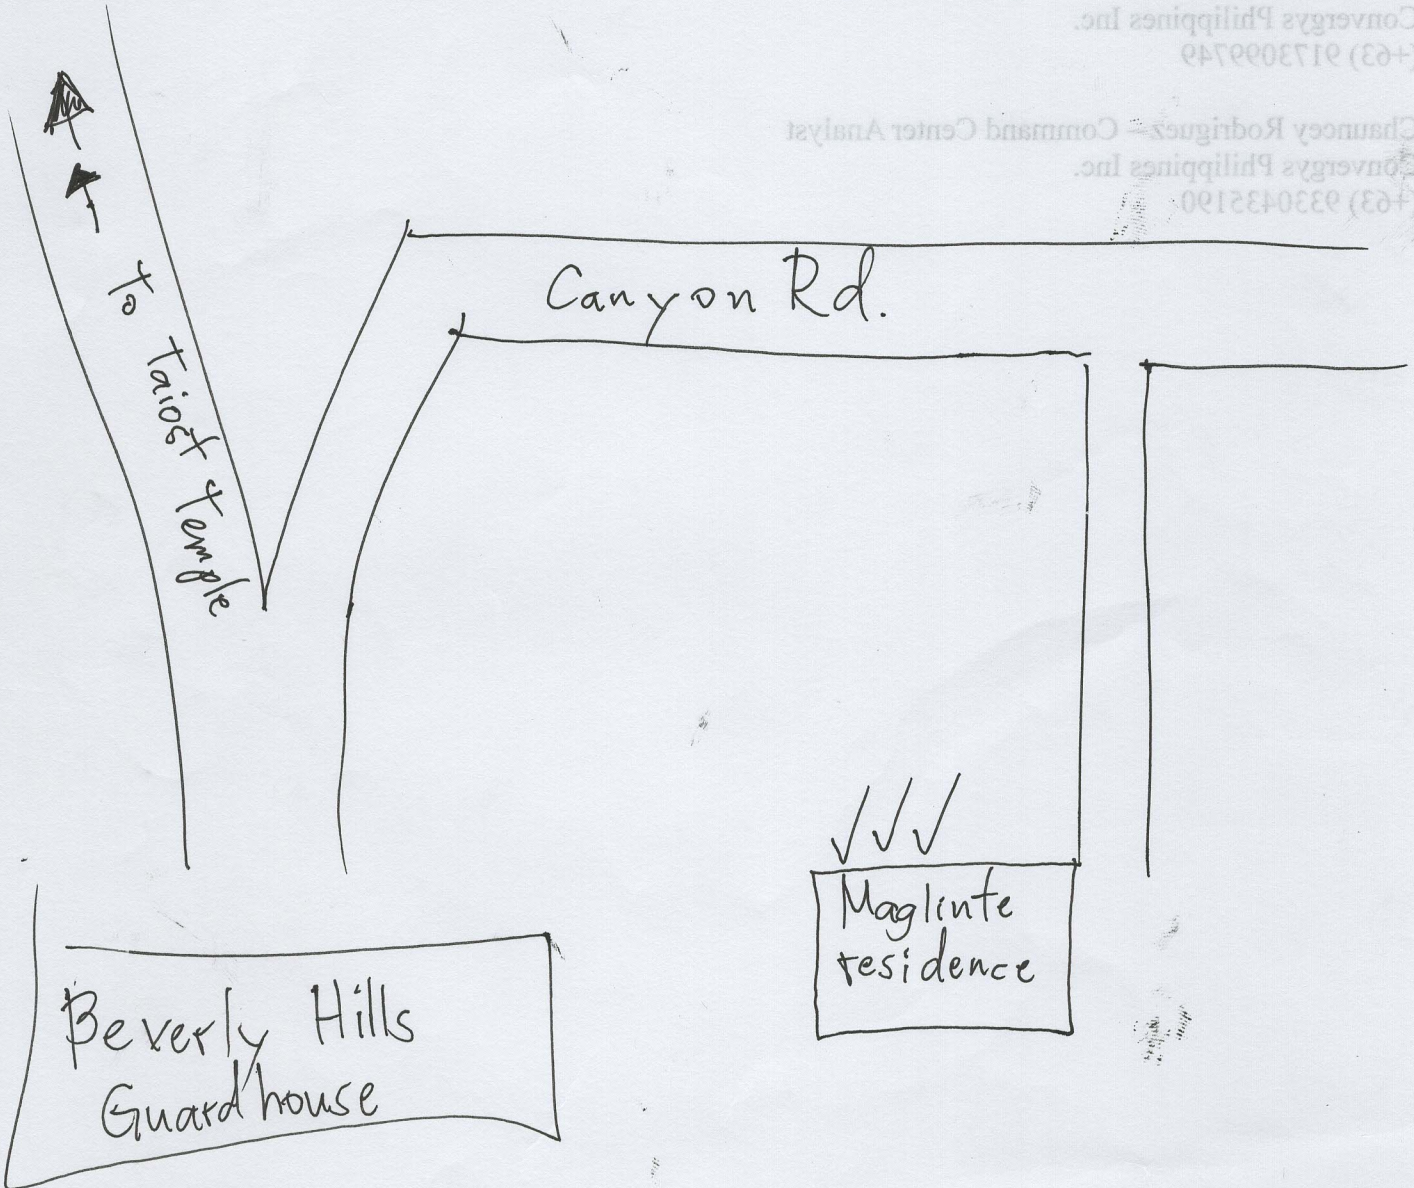 Convergys Philippines Inc.
(+63) 9173099749
Chauncey Rodriguez– Command Center Analyst
Convergys Philippines Inc.
(+63) 9330435190
Canyon Rd.
To Taiost Temple
Maglinte
residence
Beverly Hills
Guard house